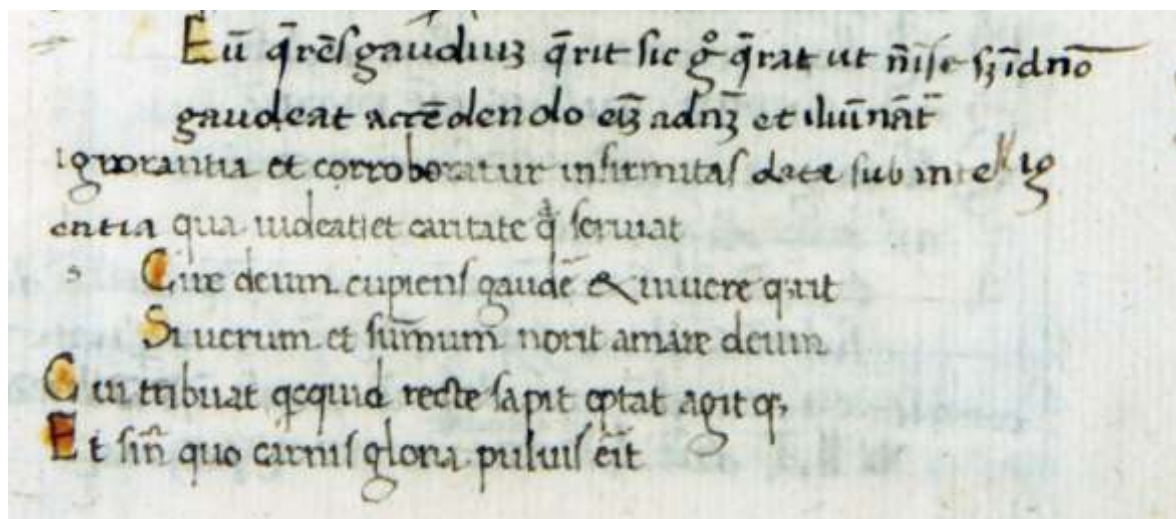 Eū q̄rēs gaudiuꝫ q̄rit sic gͦ q̄rat ut n̄ i se sꝫ i dn̄o
gaudeat accēdendo eīꝫ ad dn̄ꝫ et iluīnāt̄
ignorantia et corroboratur infirmitas data sub intellig
entia qua uideat et caritate q̄ seruiat
Cur deum cupiens gaudē & uiuere q̄rit
Si uerum et sūmum norit amare deum
Cui tribuat qcquid recte sapit optat agit qꝫ
Et sin̄ quo carnis gloria puluis erit